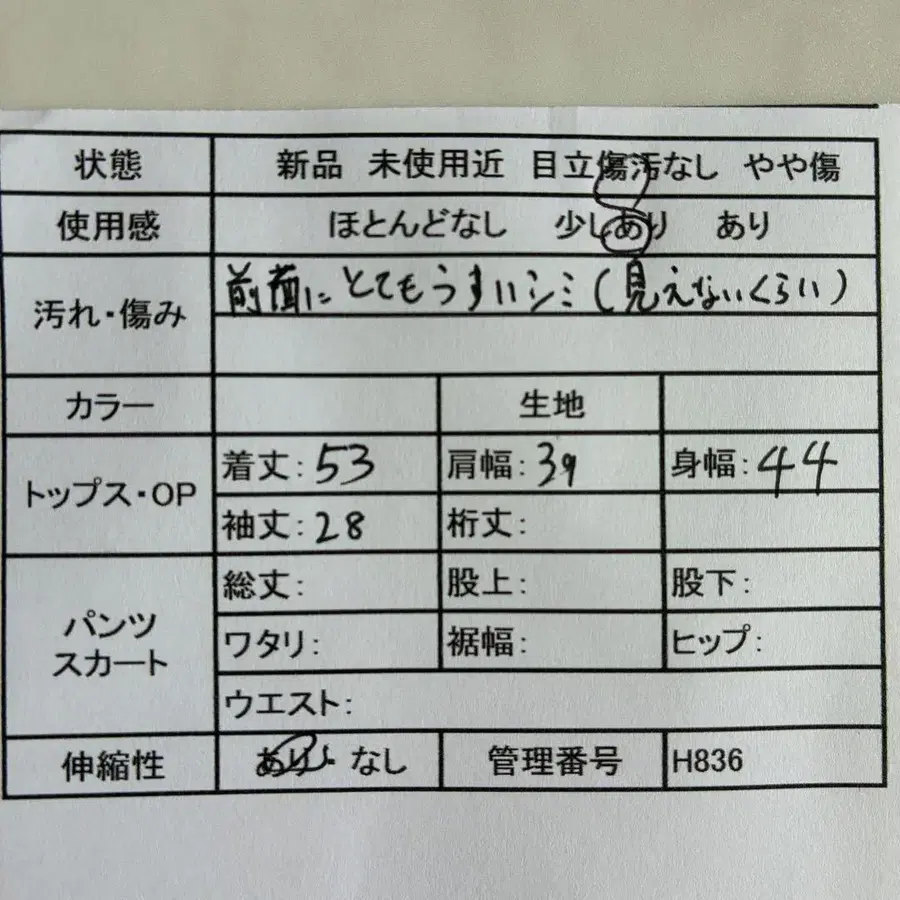 状態 新品 未使用近 目立傷汚なし やや傷
使用感 ほとんどなし 少しあり あり
汚れ・傷み 前面にとてもうすいシミ(見えないくらい)
カラー 生地
トップス・OP 着丈:53 肩幅:39 身幅:44
袖丈:28 裄丈:
パンツ
スカート
総丈: 股上: 股下:
ワタリ: 裾幅: ヒップ:
ウエスト:
伸縮性 あり・なし 管理番号 H836